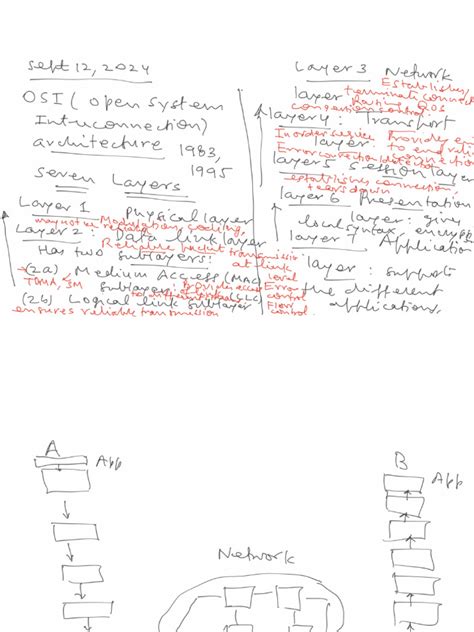 Sept 12, 2024
OSI ( open system
Intruconnection)
architecture 1983,
1995
Seven Layers
Layer 1 Physical layer
may not be reliable Modulation, coding,
Layer 2: Data link layer
Reliable packet transmission
Has two sublayers: at link
(2a) Medium Access (MAC) level
TDMA, sublayer: Provides access
(2b) Logical link sublayer (LLC)
ensures reliable transmission
Error
control
Flow
control
Layer 3 Network
layer Establishes,
terminate connect
Routing, QOS
congestion control
layer 4: Transport
In order service Provides en
layer to end reli
Error correction/detection connection
layer 5 session layer
establishes connection,
tears down
layer 6 Presentation
layer: gives
local syntax, encryp
layer 7 Application
layer: supports
the different
applications.
A
App
B
App
Network